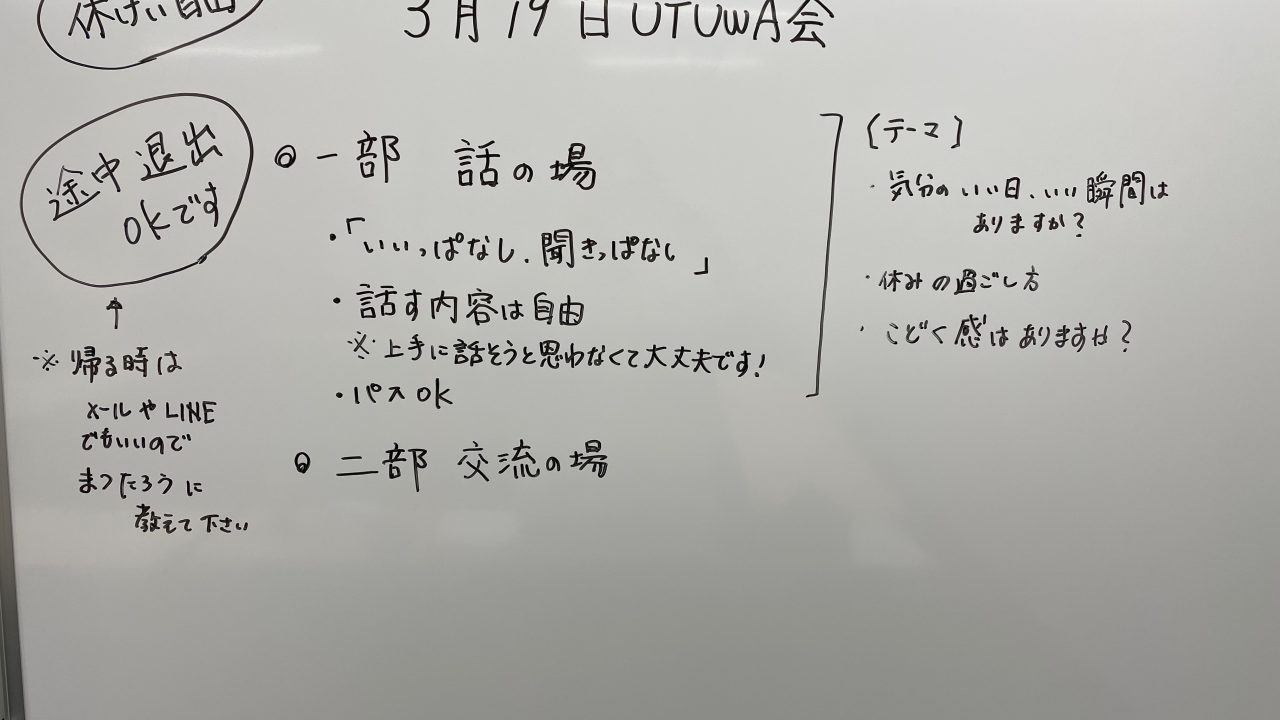 休けい自由
3月19日UTUWA会
途中退出
OKです
↑
※帰る時は
メールやLINE
でもいいので
まつたろうに
教えて下さい
◎一部 話の場
・「いいっぱなし、聞きっぱなし」
・話す内容は自由
※上手に話そうと思わなくて大丈夫です!
・パスOK
◎二部 交流の場
[テーマ]
・気分のいい日、いい瞬間は
ありますか?
・休みの過ごし方
・こどく感はありますか?